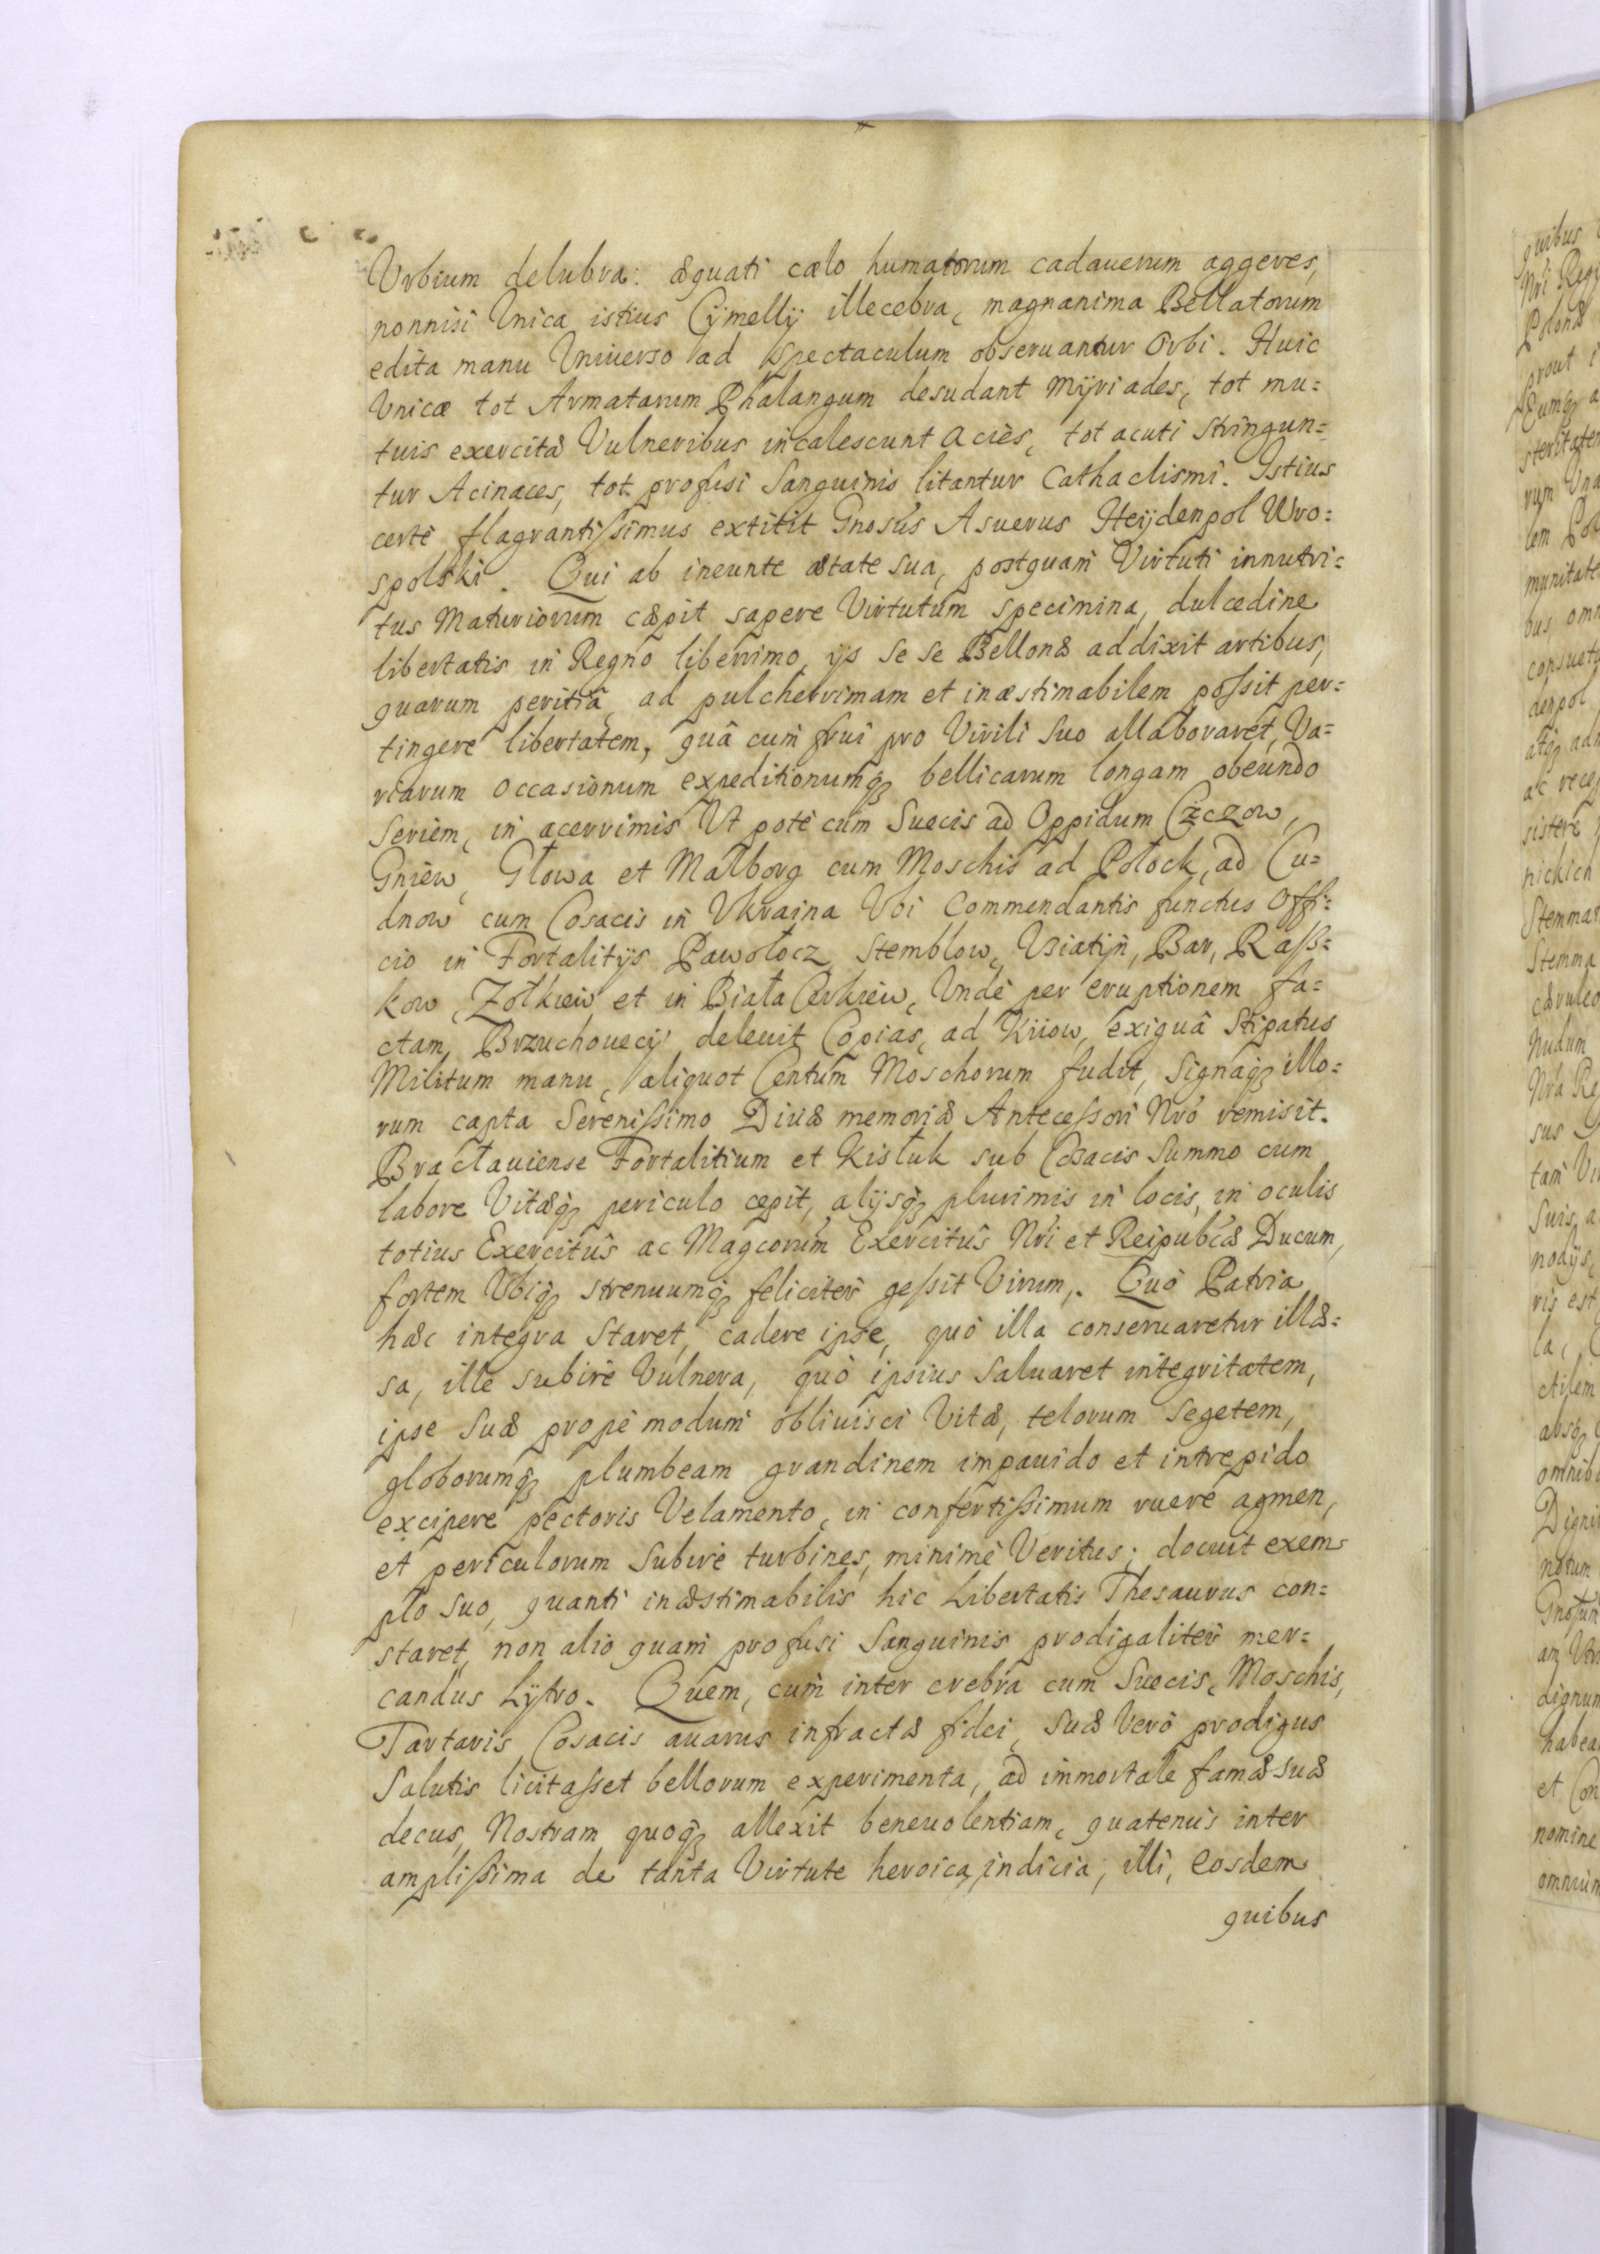 Vrbium delubra: æquati cælo humatorum cadauerum aggeres,
nonnisi Vnica istius Cÿmellÿ illecebra, magnanima Bellatorum
edita manu Vniuerso ad spectaculum obseruantur Orbi. Huic
Vnicæ tot Armatarum Phalangum desudant Mÿriades, tot mu=
tuis exercitæ Vulneribus incalescunt Aciès, tot acuti stringun=
tur Acinaces, tot profusi Sanguinis litantur Cathaclismi. Istius
certè flagrantißimus extitit Gnosùs Asuerus Heÿdenpol Wro=
spolski. Qui ab ineunte ætate sua, postquam Virtuti innutri=
tus Maturiorum cæpit sapere Virtutum specimina, dulcedine
libertatis in Regno liberrimo, ijs se se Bellonæ addixit artibus,
quarum peritiâ ad pulcherrimam et inæstimabilem poßit per=
tingere libertatem, quâ cum frui pro Virili suo allaboraret, Va=
riarum occasionum expeditionumq bellicarum longam obeundo
Seriem, in acerrimis Vt potè cum Suecis ad Oppidum Czczow,
Gniew, Głowa et Malborg cum Moschis ad Połock, ad Cu=
dnow cum Cosacis in Vkraina Vbi Commendantis functus Offi=
cio in Fortalitÿs Pawołocz, Stemblow, Vsiatÿn, Bar, Raß=
kow, Zołkiew et in Biała Cerkiew, Vndè per eruptionem fa=
ctam, Brzuchoueciÿ deleuit Copias, ad Kiiow, exiguâ Stipatus
Militum manu, aliquot Centum Moschorum fudit, Signaq illo=
rum capta Serenißimo Diuæ memoriæ Anteceßori Nrô remisit.
Bractauiense Fortalitium et Kisłuk sub Cosacis Summo cum
labore Vitæq periculo cepit, alijsq plurimis in locis, in oculis
totius Exercitûs ac Magcorum Exercitûs Nri et Reipubcæ Ducum,
fortem Vbiq strenuumq feliciter geßit Virum. Quò Patria
hæc integra staret, cadere ipse, quò illa conseruaretur illæ=
sa, ille subire Vulnera, quò ipsius saluaret integritatem,
ipse suæ propè modum obliuisci Vitæ, telorum segetem,
globorumq plumbeam grandinem impauido et intrepido
excipere pectoris Velamento, in confertißimum ruere agmen,
et periculorum subire turbines, minimè Veritus; docuit exem=
plo suo, quanti inæstimabilis hic Libertatis Thesaurus con=
staret, non alio quam profusi Sanguinis prodigaliter mer=
candus Lÿtro. Quem, cum inter crebra cum Suecis, Moschis,
Tartaris, Cosacis auarus infractæ fidei, suæ Verò prodigus
Salutis licitaßet bellorum experimenta, ad immortale famæ suæ
decus, Nostram quoq allexit beneuolentiam, quatenùs inter
amplißima de tanta Virtute heroica indicia, illi, eosdem
quibus